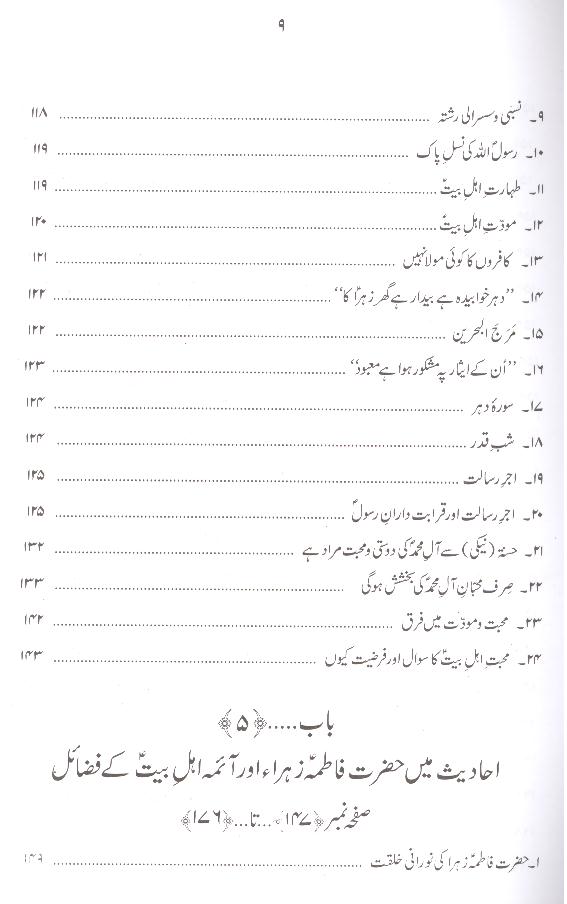 ۹
۹۔ نسبی وسسرالی رشتہ ........ ۱۱۸
۱۰۔ رسولؐ اللہ کی نسلِ پاک ........ ۱۱۹
۱۱۔ طہارتِ اہلِ بیتؑ ........ ۱۱۹
۱۲۔ مودّتِ اہلِ بیتؑ ........ ۱۲۰
۱۳۔ کافروں کا کوئی مولا نہیں ........ ۱۲۱
۱۴۔ ”دہر خوابیدہ ہے بیدار ہے گھر زہراؑ کا“ ........ ۱۲۲
۱۵۔ مَرَجَ البحرین ........ ۱۲۲
۱۶۔ ”اُن کے ایثار پہ مشکور ہوا ہے معبود“ ........ ۱۲۳
۱۷۔ سورۂ دہر ........ ۱۲۴
۱۸۔ شبِ قدر ........ ۱۲۴
۱۹۔ اجرِ رسالت ........ ۱۲۵
۲۰۔ اجرِ رسالت اور قرابت دارانِ رسولؐ ........ ۱۲۵
۲۱۔ حسنۃ (نیکی) سے آلِ محمدؐ کی دوستی و محبت مراد ہے ........ ۱۳۲
۲۲۔ صِرف محبّانِ آلِ محمدؐ کی بخشش ہوگی ........ ۱۳۳
۲۳۔ محبت و مودّت میں فرق ........ ۱۴۲
۲۴۔ محبتِ اہلِ بیتؑ کا سوال اور فرضیت کیوں ........ ۱۴۳
باب.....﴿۵﴾
احادیث میں حضرت فاطمہؑ زہراء اور آئمہ اہلِ بیتؑ کے فضائل
صفحہ نمبر ﴿۱۴۷﴾...تا...﴿۱۷۶﴾
۱۔ حضرت فاطمہؑ زہرا کی نورانی خلقت ........ ۱۴۹